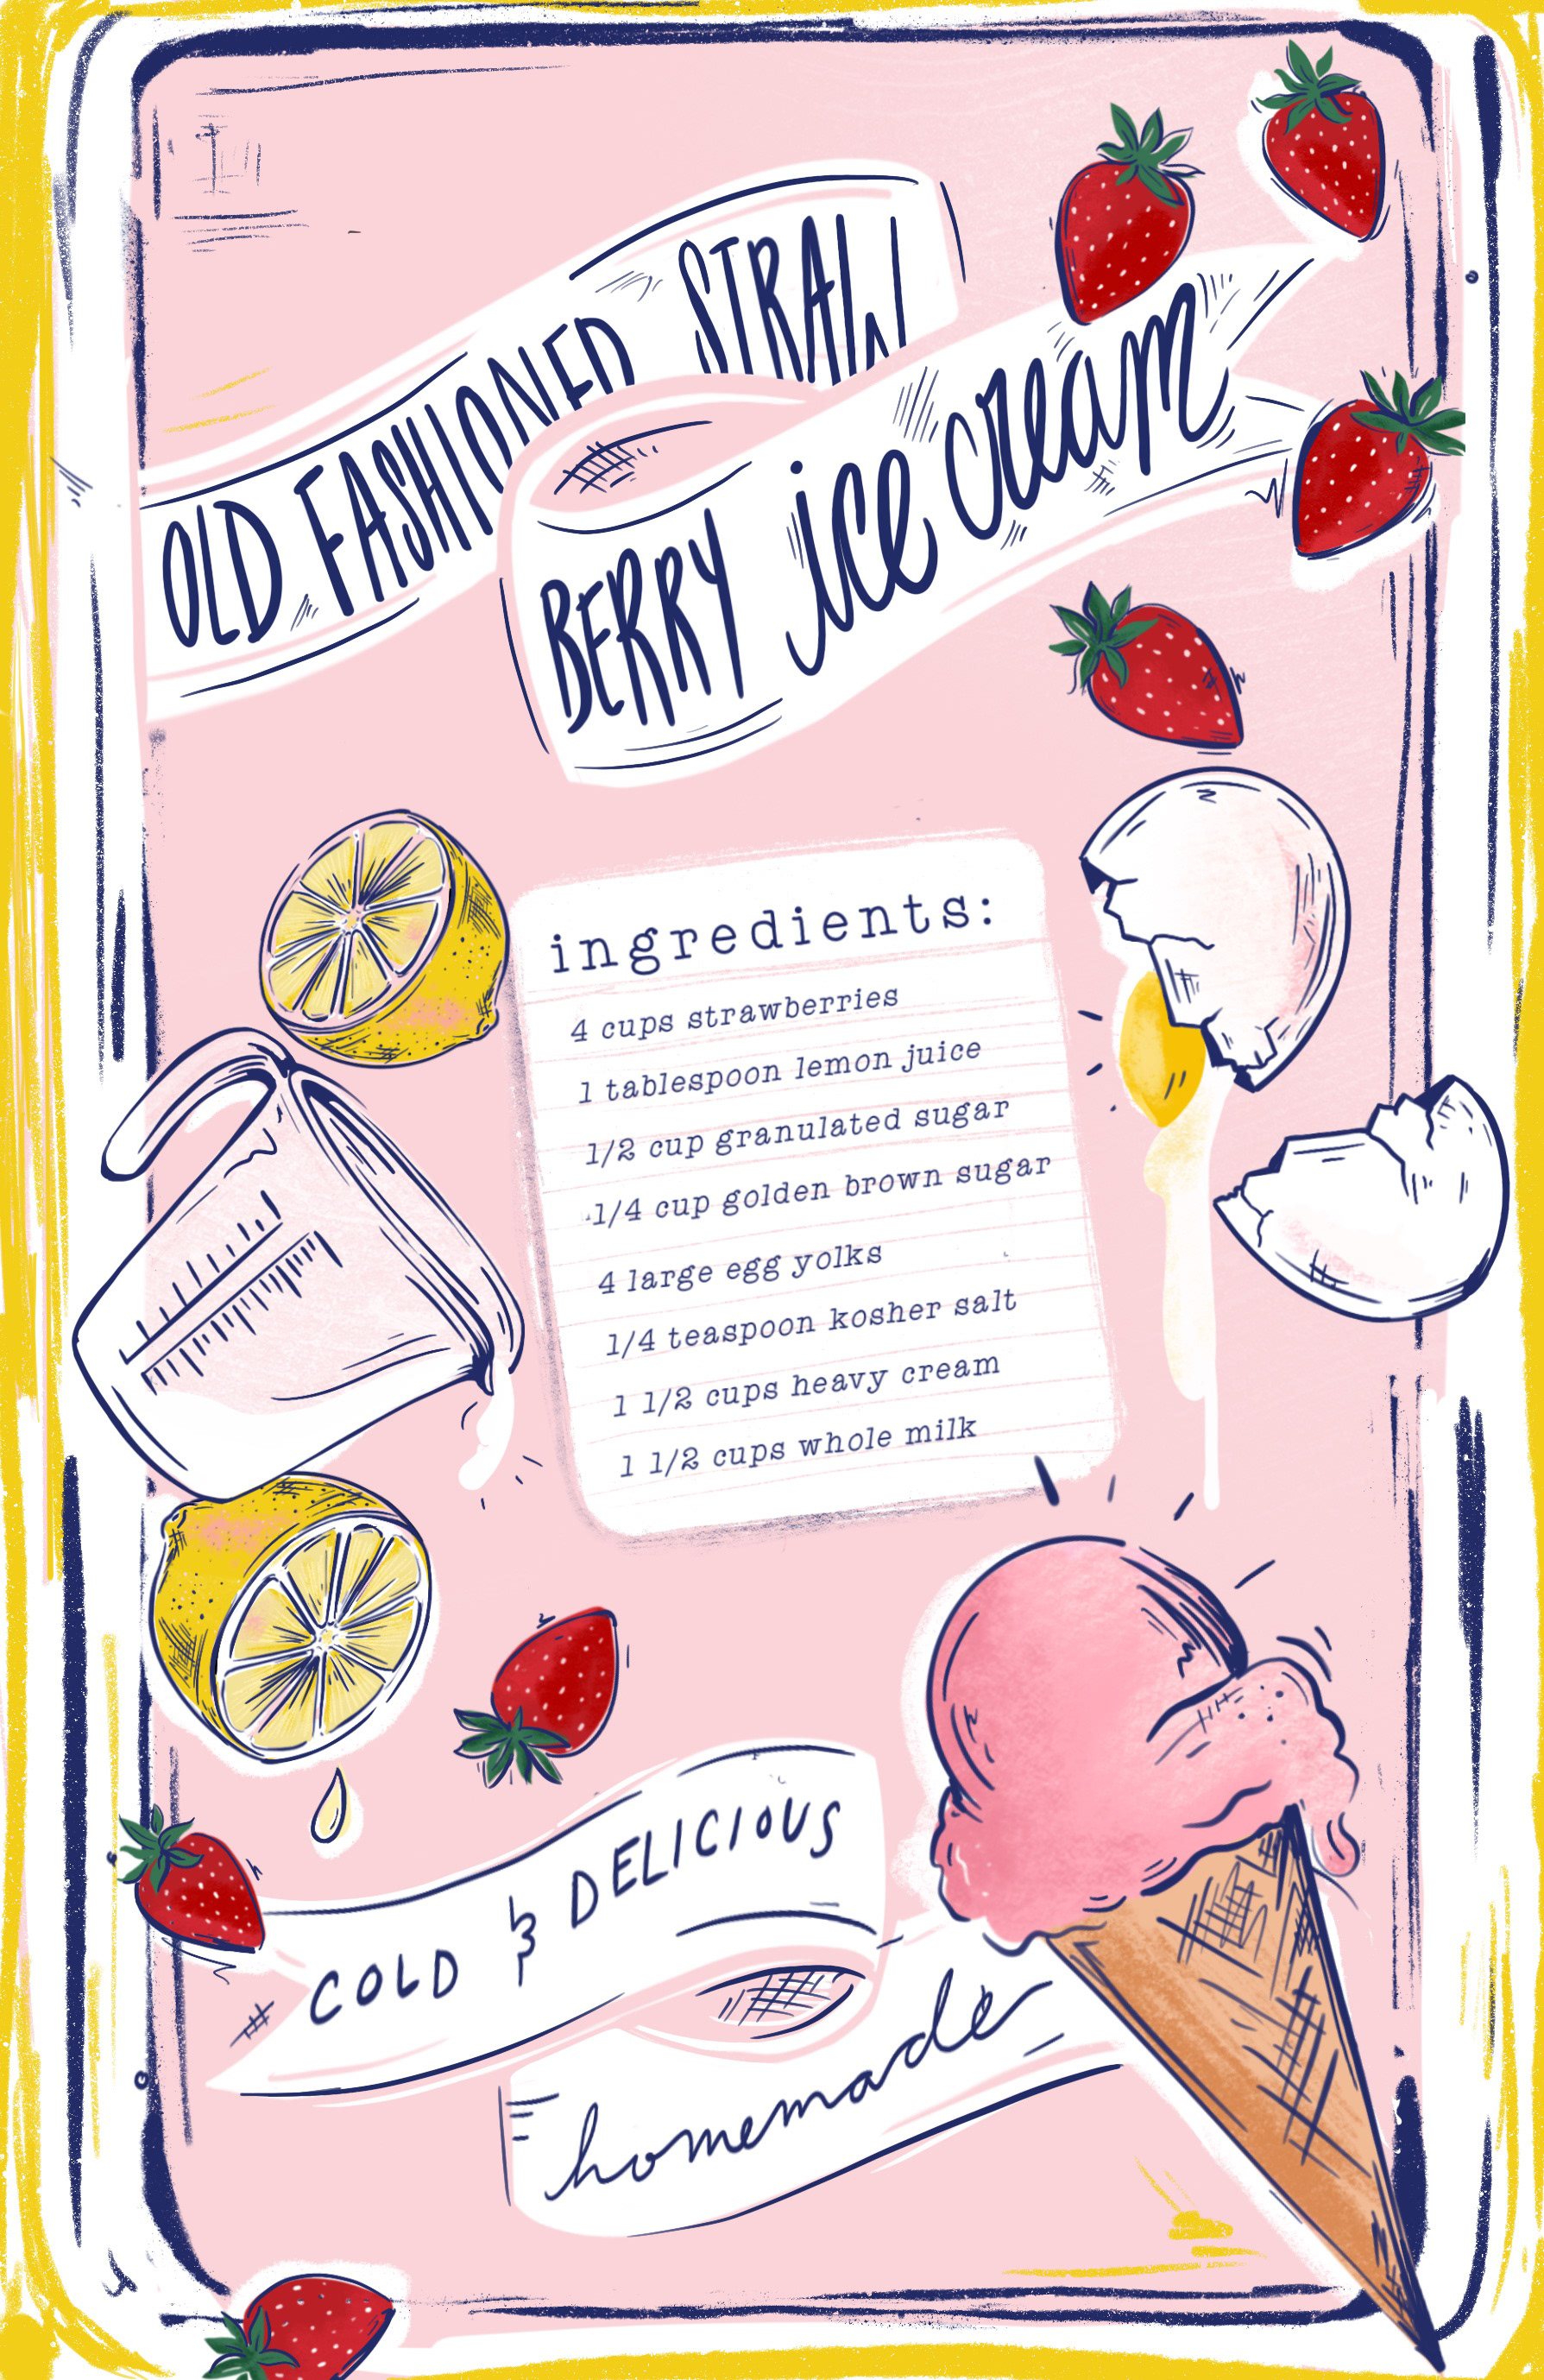 OLD FASHIONED STRAW
BERRY ice cream
ingredients:
4 cups strawberries
1 tablespoon lemon juice
1/2 cup granulated sugar
1/4 cup golden brown sugar
4 large egg yolks
1/4 teaspoon kosher salt
1 1/2 cups heavy cream
1 1/2 cups whole milk
COLD & DELICIOUS
homemade